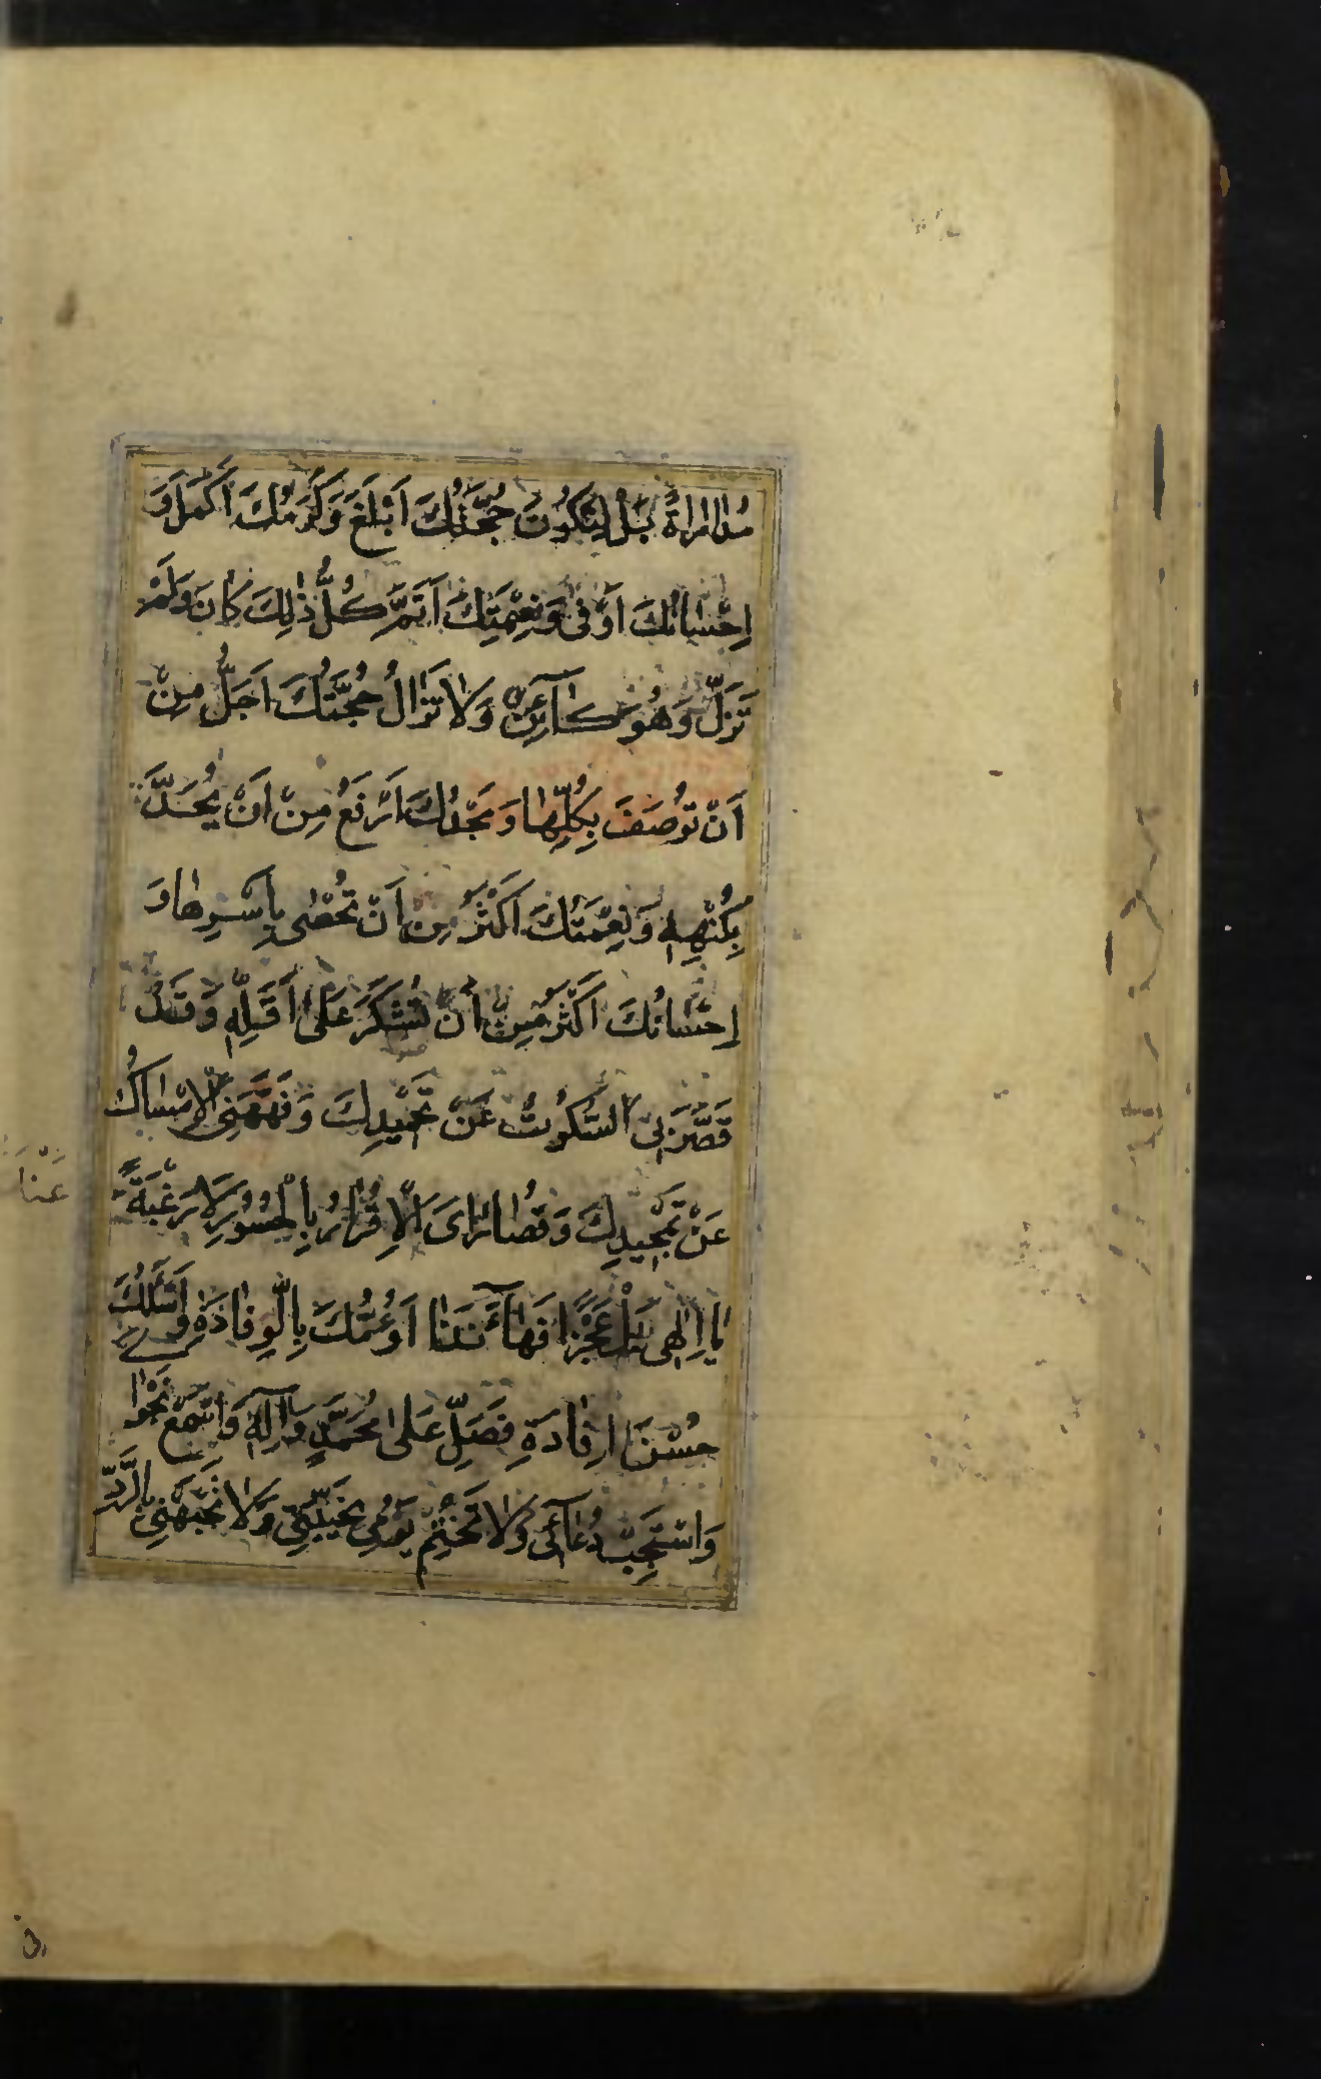 مُدٰاراةً بَلْ لِتَكُونَ حُجَّتُكَ اَبْلَغَ وَكَرَمُكَ اَكْمَلَ وَ
اِحْسٰانُكَ اَوْفٰى وَنِعْمَتِكَ اَتَمَّ كُلُّ ذٰلِكَ كٰانَ وَلَمْ
تَزَلْ وَهُوَ كٰآئِنٌ وَلاٰ تَزٰالُ حُجَّتُكَ اَجَلُّ مِنْ
اَنْ تُوصَفَ بِكُلِّهٰا وَمَجْدُكَ اَرْفَعُ مِنْ اَنْ يُحَدَّ
بِكُنْهِهِ وَنِعْمَتُكَ اَكْثَرُ مِنْ اَنْ تُحْصٰى بِاَسْرِهٰا وَ
اِحْسٰانُكَ اَكْثَرُ مِنْ اَنْ تُشْكَرَ عَلىٰ اَقَلِّهِ وَقَدْ
قَصَّرَ بِىَ السُّكُوتُ عَنْ تَحْمِيْدِكَ وَفَهَّهَنِى الْاِمْسٰاكُ
عَنْ تَمْجِيدِكَ وَقُصٰارٰاىَ الْاِقْرٰارُ بِالْحُسُورِ لاٰ رَغْبَةً
يٰا اِلٰهِى بَلْ عَجْزًا فَهٰآ اَنَذٰا اَؤُمُّكَ بِالْوِفٰادَةِ وَاَسْئَلُكَ
حُسْنَ الرِفٰادَةِ فَصَلِّ عَلىٰ مُحَمَّدٍ وَآلِهِ وَاسْمَعْ نَجْوٰاىَ
وَاسْتَجِبْ دُعٰآئى وَلاٰ تَخْتِمْ يَوْمِى بِخَيْبَتِى وَلاٰ تَجْبَهْنِى بِالرَّدِّ
عَنْاَ